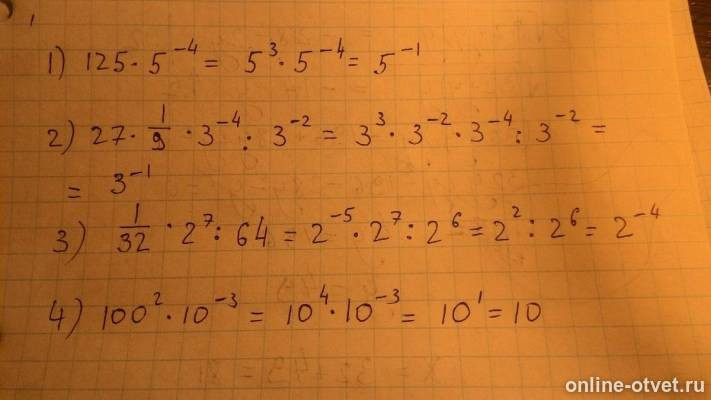 1) 125 · 5⁻⁴ = 5³ · 5⁻⁴ = 5⁻¹
2) 27 · 1/9 · 3⁻⁴ : 3⁻² = 3³ · 3⁻² · 3⁻⁴ : 3⁻² =
= 3⁻¹
3) 1/32 · 2⁷ : 64 = 2⁻⁵ · 2⁷ : 2⁶ = 2² : 2⁶ = 2⁻⁴
4) 100² · 10⁻³ = 10⁴ · 10⁻³ = 10¹ = 10
online-otvet.ru